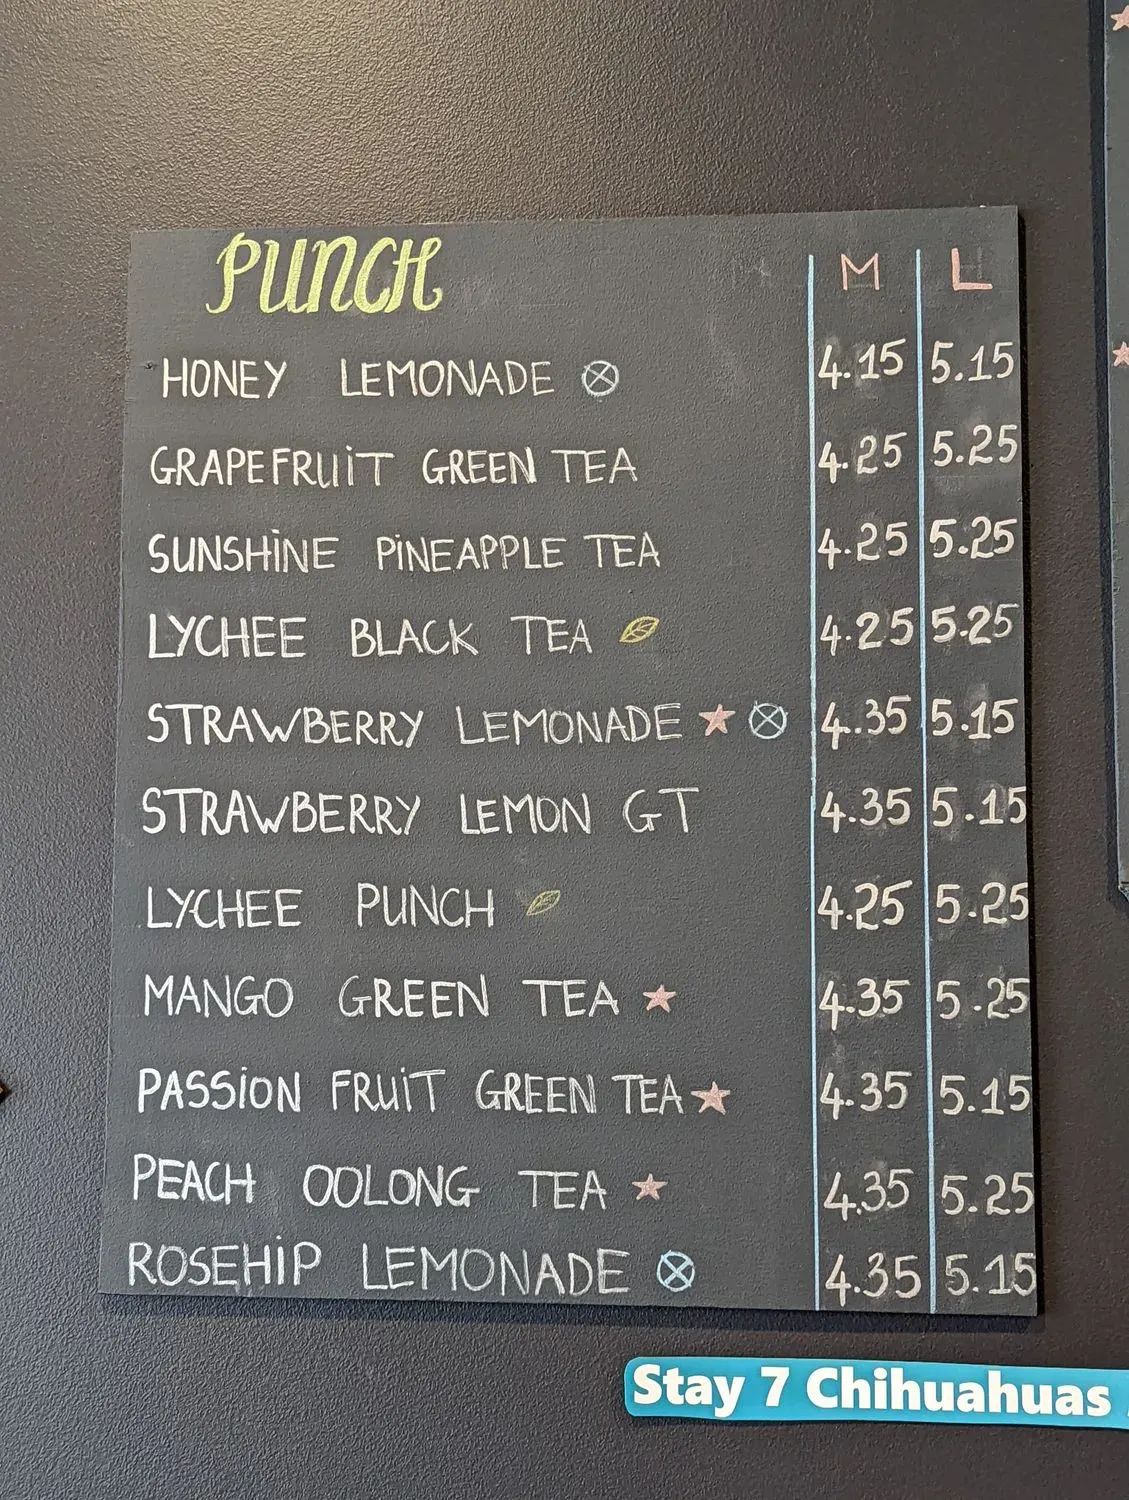 PUNCH M L
HONEY LEMONADE 4.15 5.15
GRAPEFRUiT GREEN TEA 4.25 5.25
SUNSHiNE PiNEAPPLE TEA 4.25 5.25
LYCHEE BLACK TEA 4.25 5.25
STRAWBERRY LEMONADE 4.35 5.15
STRAWBERRY LEMON GT 4.35 5.15
LYCHEE PUNCH 4.25 5.25
MANGO GREEN TEA 4.35 5.25
PASSiON FRUiT GREEN TEA 4.35 5.15
PEACH OOLONG TEA 4.35 5.25
ROSEHiP LEMONADE 4.35 5.15
Stay 7 Chihuahuas